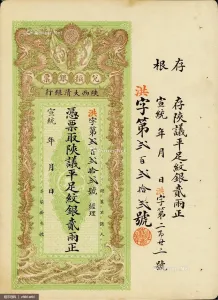 兌換銀票
陝西大清銀行
洪字第貳百貳拾貳號 經理
憑票取陝議平足紋銀貳兩正
宣統 年 月 日
存根
存陝議平足紋銀貳兩正
宣統 年 月 日洪字第二百廿二號
洪字第貳百貳拾貳號